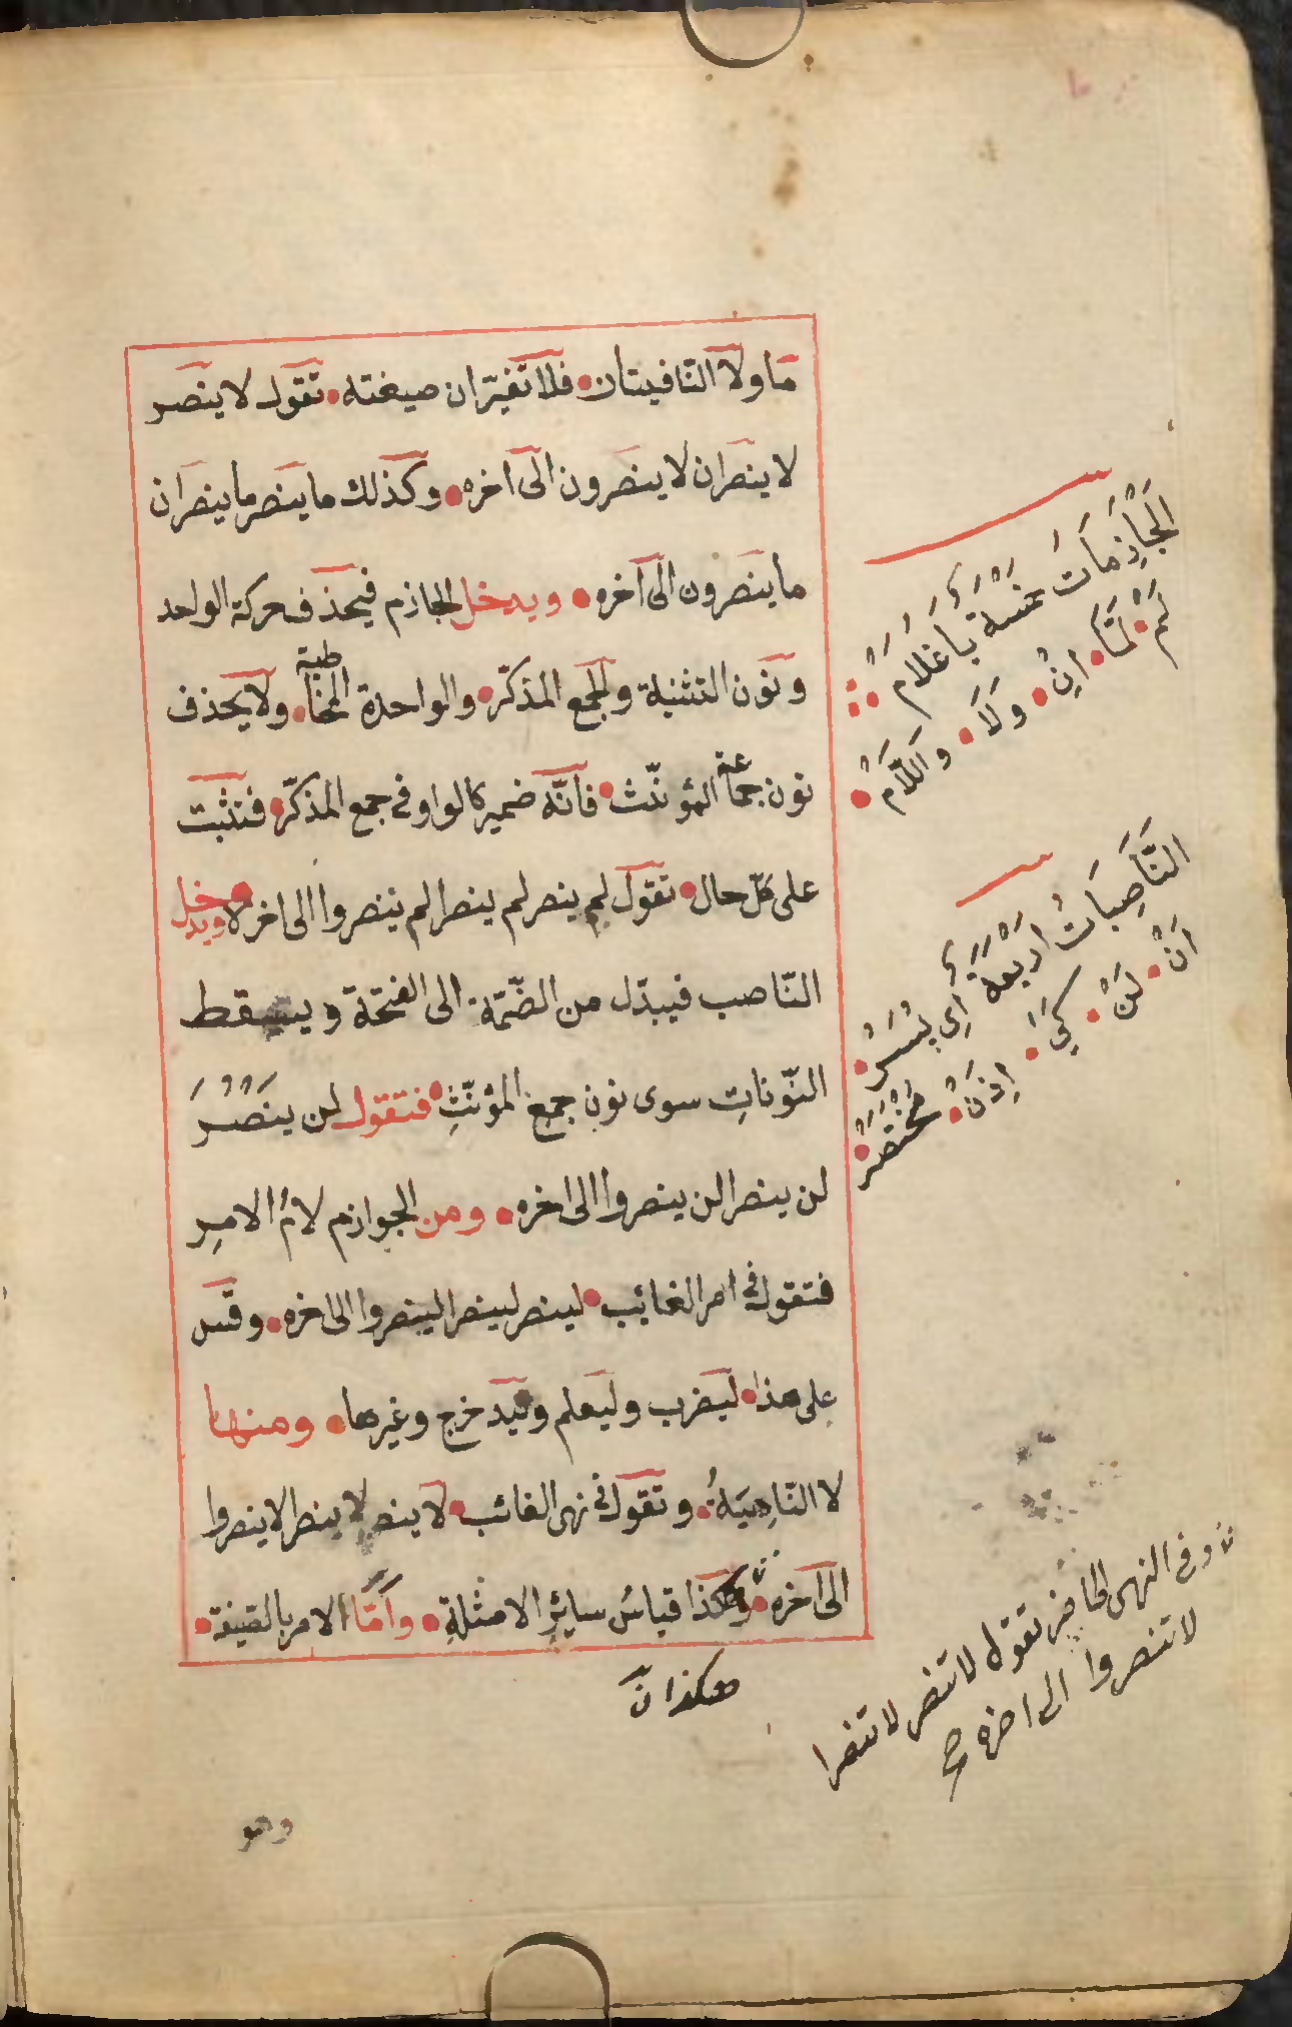 ما ولا النّافيتان فلا تغيّران صيغته تقول لا ينصر
لا ينصران لا ينصرون الى اخره وكذلك ما ينصر ما ينصران
ما ينصرون الى آخره ويدخل الجازم فيحذف حركة الواحد
ونون التثنية والجمع المذكّر والواحدة المخاطبة ولا يحذف
نون جماعة المؤنّث فانّه ضمير كالواو فى جمع المذكّر فتثبت
على كلّ حال تقول لم ينصر لم ينصرا لم ينصروا الى اخره ويدخل
النّاصب فيبدّل من الضّمّة الى الفتحة ويسقط
النّوناتِ سوى نون جمع المؤنّثِ فتقول لن ينصُرَ
لن ينصرا لن ينصروا الى اخره ومن الجوازم لامُ الامرِ
فتقول فى امر الغائب لينصر لينصرا لينصروا الى اخره وقس
على هذا ليضرب وليعلم وليدخرج وغيرها ومنها
لا النّاهِيَةُ وتقول فى نهى الغائب لا ينصر لا ينصرا لا ينصروا
الى آخره وهكذا قياسُ سايرِ الامثلةِ وامّا الامر بالصّيغة
هكذا نَ
وهو
الجَاذِمَات خمسة يا غلامُ
لَمْ لَمَّا اِنْ وَلَا وَاللَّامُ
النَّاصِبَاتُ اَرْبَعَة اى بُسَرُ
اَنْ لَنْ كَىْ اِذَنْ مُخْتَصَرُ
وفى النهى الحاضر تقول لا تنصر لا تنصرا
لا تنصروا الى اخره صح